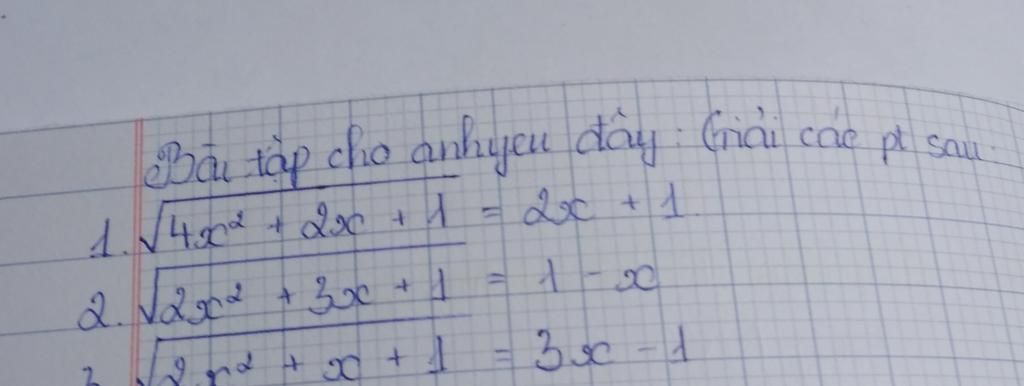 Bài tập cho anhyeu đây: Giải các pt sau.
1. √4x² + 2x + 1 = 2x + 1.
2. √2x² + 3x + 1 = 1 - x
3. √2x² + x + 1 = 3x - 1